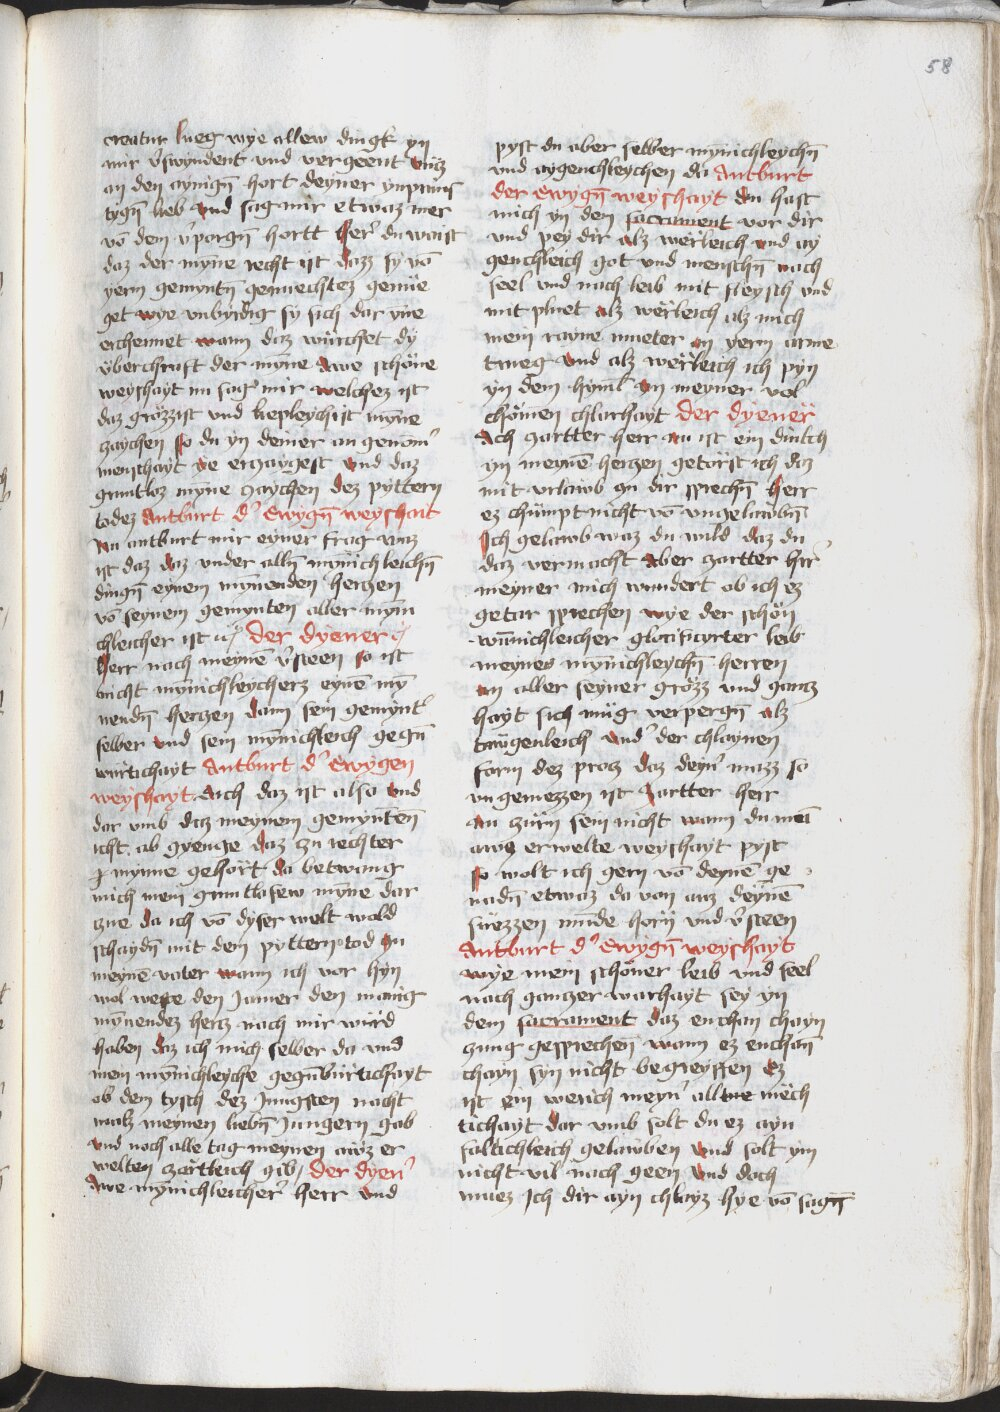 58
creatur lueg wye allew dingk yn
mir v̓swyndent vnd vergeent vncz
an den aynign̄ hort deyner ynprünſ
tign̄ lieb vnd sag mir etwaz mer
vō dem v̓porgn̄ hortt her̓ du waist
daz der mȳne recht ist dazz sy vō
yerm gemyntn̄ genuechtez genüe
get wye vnbirdig sy sich dar yñe
erchennet wann daz würchet dy
vberchraft der mȳne Awe schöne
weyshayt nu sag mir welchez ist
daz grözzist vnd liepleychist mȳne
zaychen so du yn deiner an genom̄
menschayt ye erzaygest vnd daz
gruntloz mȳne zaychen dez pyttern
todez Antburt d̓ Ewygn̄ weyshait
Nu antburt mir eyner frag waz
ist daz daz vnder alln̄ mȳnichleichn̄
dingn̄ eynem mȳnenden herczen
vō seynem gemynten aller mȳni
chleicher ist Der dyener
Herr nach meynē v̓steen so ist
nicht mȳnichleycherz eynē mȳ
nendn̄ herczen dann sein gemynt̓
selber vnd sein mȳnichleich gegn̄
würtichayt Antburt d̓ Ewygen
weyshayt Auch daz ist also vnd
dar vmb daz meynem gemynten
icht ab gyenge daz zu rechter
mynne gehört da betwang
mich mein gruntlasew mȳne dar
zue da ich vō dyser welt wold
schaydn̄ mit dem pyttern tod zu
meynē vater wann ich vor hyn
wol weste den Jamer den manig
mȳnendez hercz nach mir würd
haben daz ich mich selber da vnd
mein mȳnichleyche gegn̄bürtichayt
ob dem tysch dez Jungsten nacht
malz meynen liebn̄ Jungern gab
vnd noch alle tag meynen awz er
welten zartleich gib Der dyen̓
Awe mȳnichleicher̓ herr vnd
pyst du aber selber mynichleychn̄
vnd aygenchleychen da Antburt
der Ewygn̄ weyshayt du hast
mich yn den sacrament vor dir
vnd pey dir alz werleich vnd ay
genchleich got vnd menschn̄ nach
seel vnd nach leib mit fleysch vnd
mit pluet alz werleich alz mich
mein rayne mueter an yerm arme
trueg vnd alz werleich ich pyn
yn dem hyml̓ yn meyner vol
chömen chlarhayt Der dyener
Ach zartter herr nu ist ein dinkch
yn meynē herczen getörst ich daz
mit vrlawb zu dir sprechn̄ herr
ez chümpt nicht vō vngelawbn̄
Ich gelawb waz du wild daz du
daz vermacht Aber zartter her̓
meyner mich wundert ob ich ez
getar sprechen wye der schön
wūnichleicher glorificyrter leib
meynes mȳnichleychn̄ herren
yn aller seyner grözz vnd gancz
hayt sich müg verpergn̄ alz
taugenleich vnd̓ der chlaynen
form dez procz daz deyn̓ mazz so
vn gemezzen ist Zartter herr
nu zürn sein nicht wann du mei
awz erwelte weyshayt pyst
so wolt ich gern vō deynē ge
nadn̄ etwaz da von auz deynē
süezzen mūde horn vnd v̓steen
Antburt d̓ Ewygn̄ weyshayt
Wye mein schöner leib vnd seel
nach ganczer warhayt sey yn
dem sacrament daz enchan chayn
zung gesprechen wann ez enchan
chayn syn nicht begreyffen Ez
ist ein werich meyn̓ alltue mëch
tichayt dar vmb solt du ez ayn
faltichleich gelawben vnd solt ym
nicht vil nach geen vnd doch
muez ich dir ayn chlayz hye vō sagn̄